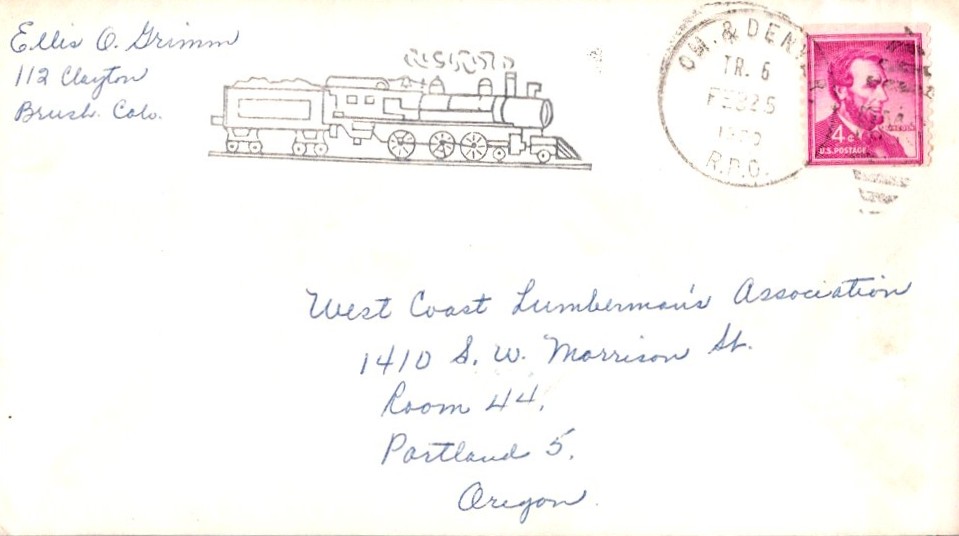 Ellis O. Grimm
112 Clayton
Brush. Colo.
OM. & DENVER
TR. 6
FEB 25
R.P.O.
4¢
U.S. POSTAGE
West Coast Lumberman's Association
1410 S. W. Morrison St.
Room 44,
Portland 5,
Oregon.